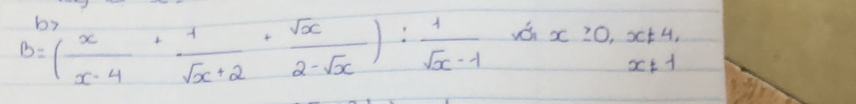 b>
B = ( x/(x-4) + 1/(√x+2) + √x/(2-√x) ) : 1/(√x-1) với x ≥0, x≠4,
x≠1